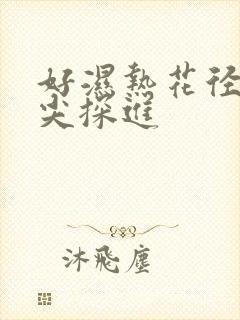 好濕熱花径
尖探進
沐飛塵